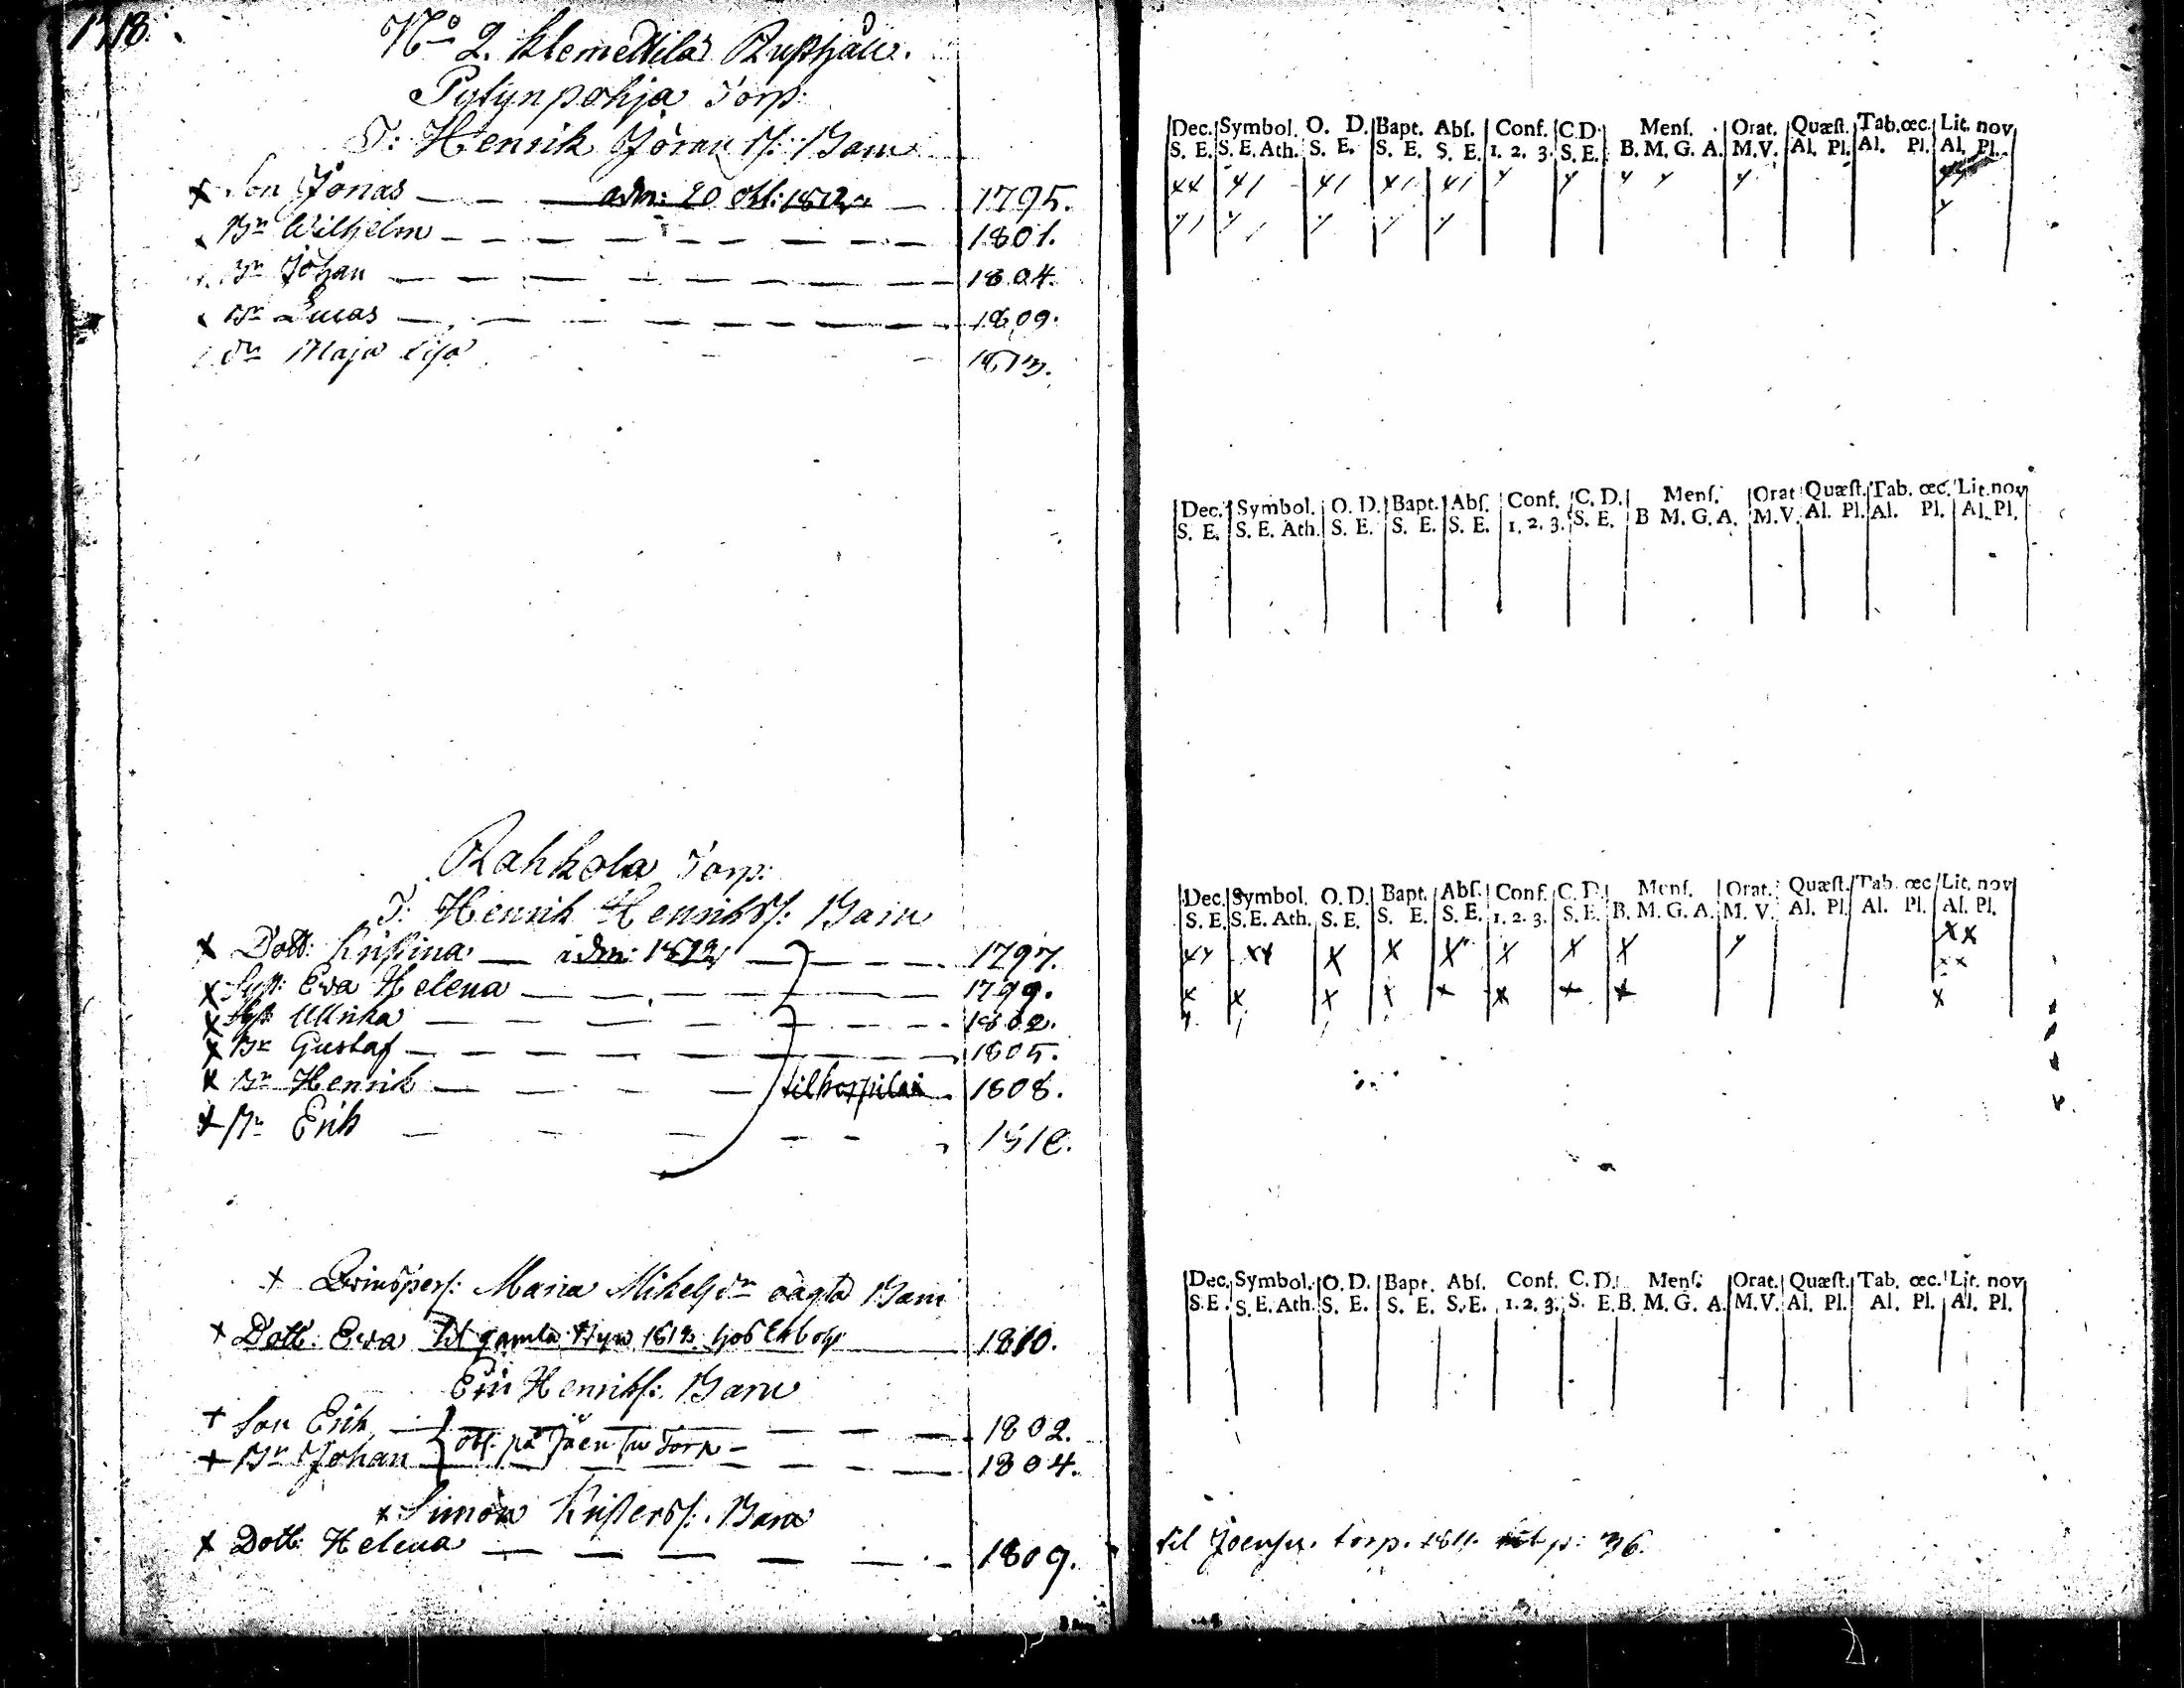 Nº 2. Klemettilä Rusthåll.
Pytynpohja Torp.
T: Henrik Jöran Ss: Barn
x Son Jonas — — adm: 20 Okt: — 1795.
Br Wilhelm — — — 1801.
Br Johan — — — 1804.
Br Lucas — — — 1809.
Sr Maja Lisa — 1813.
Dec. Symbol. O. D. Bapt. Abs. Conf. C.D. Mens. Orat. Quæst. Tab. œc. Lit. nov
S. E. S. E. Ath. S. E. S. E. S. E. 1. 2. 3. S. E. B. M. G. A. M.V. Al. Pl. Al. Pl. Al. Pl.
Dec. Symbol. O. D. Bapt. Abs. Conf. C. D. Mens. Orat Quæst. Tab. œc. Lit. nov
S. E. S. E. Ath. S. E. S. E. S. E. 1. 2. 3. S. E. B M. G. A. M.V. Al. Pl. Al. Pl. Al. Pl.
Rahkola Torp:
T: Henrik Henrikss: Barn
x Dott: Kristina — adm: — 1797.
x Syst: Eva Helena — — — 1799.
x Syst Ulrika — — — 1802.
x Br Gustaf — — — 1805.
x Br Henrik — — — til 1808.
x Br Erik — — —
Dec. Symbol. O. D. Bapt. Abs. Conf. C. D. Mens. Orat. Quæst. Tab. œc Lit. nov
S. E. S. E. Ath. S. E. S. E. S. E. 1. 2. 3. S. E. B. M. G. A. M. V. Al. Pl. Al. Pl. Al. Pl.
x Qvinspers: Maria Mikelsdr oägta Barn
x Dott: Eva til gamla 1813 hos 1810.
Eric Henrikss: Barn
x Son Erik — — — 1802.
x Br Johan obs. på Joensu Torp — 1804.
x Simon Kristerss: Barn
x Dott: Helena — — — 1809.
Dec. Symbol. O. D. Bapt. Abs. Conf. C. D. Mens. Orat. Quæst. Tab. œc. Lit. nov
S.E. S. E. Ath. S. E. S. E. S. E. 1. 2. 3. S. E. B. M. G. A. M.V. Al. Pl. Al. Pl. Al. Pl.
til Joensu torp. 1811. p: 36.